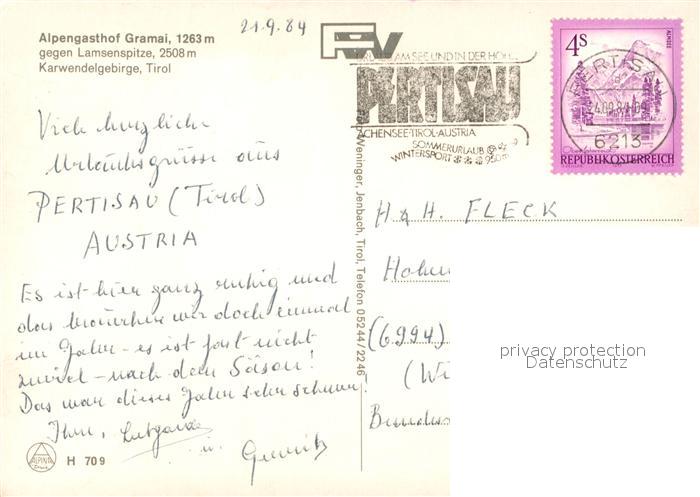 Alpengasthof Gramai, 1263 m
gegen Lamsenspitze, 2508 m
Karwendelgebirge, Tirol
21.9.84
Viele herzliche
Urlaubsgrüsse aus
PERTISAU (Tirol)
AUSTRIA
Es ist hier ganz ruhig und
das brauchen wir doch einmal
im Jahr - es ist fast nicht
zuviel - nach dem Säson!
Das war dieses Jahr sehr schwer!
Ihre,
u.
ALPINA
Druck
H 709
Weninger, Jenbach, Tirol, Telefon 05244/2246
UND IN DER
PERTISAU
ACHENSEE·TIROL·AUSTRIA
SOMMERURLAUB
WINTERSPORT 950m
4S
ALMSEE
REPUBLIK ÖSTERREICH
PERTISAU
6213
H & H. FLECK
(6994)
privacy protection
Datenschutz